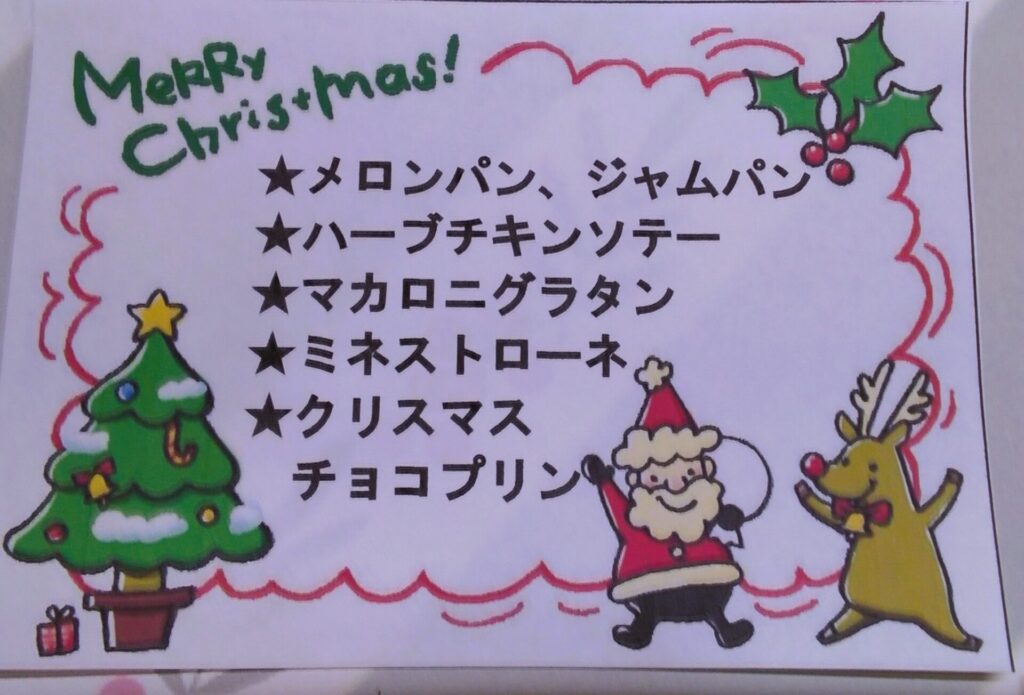 Merry
Christmas!
★メロンパン、ジャムパン
★ハーブチキンソテー
★マカロニグラタン
★ミネストローネ
★クリスマス
チョコプリン